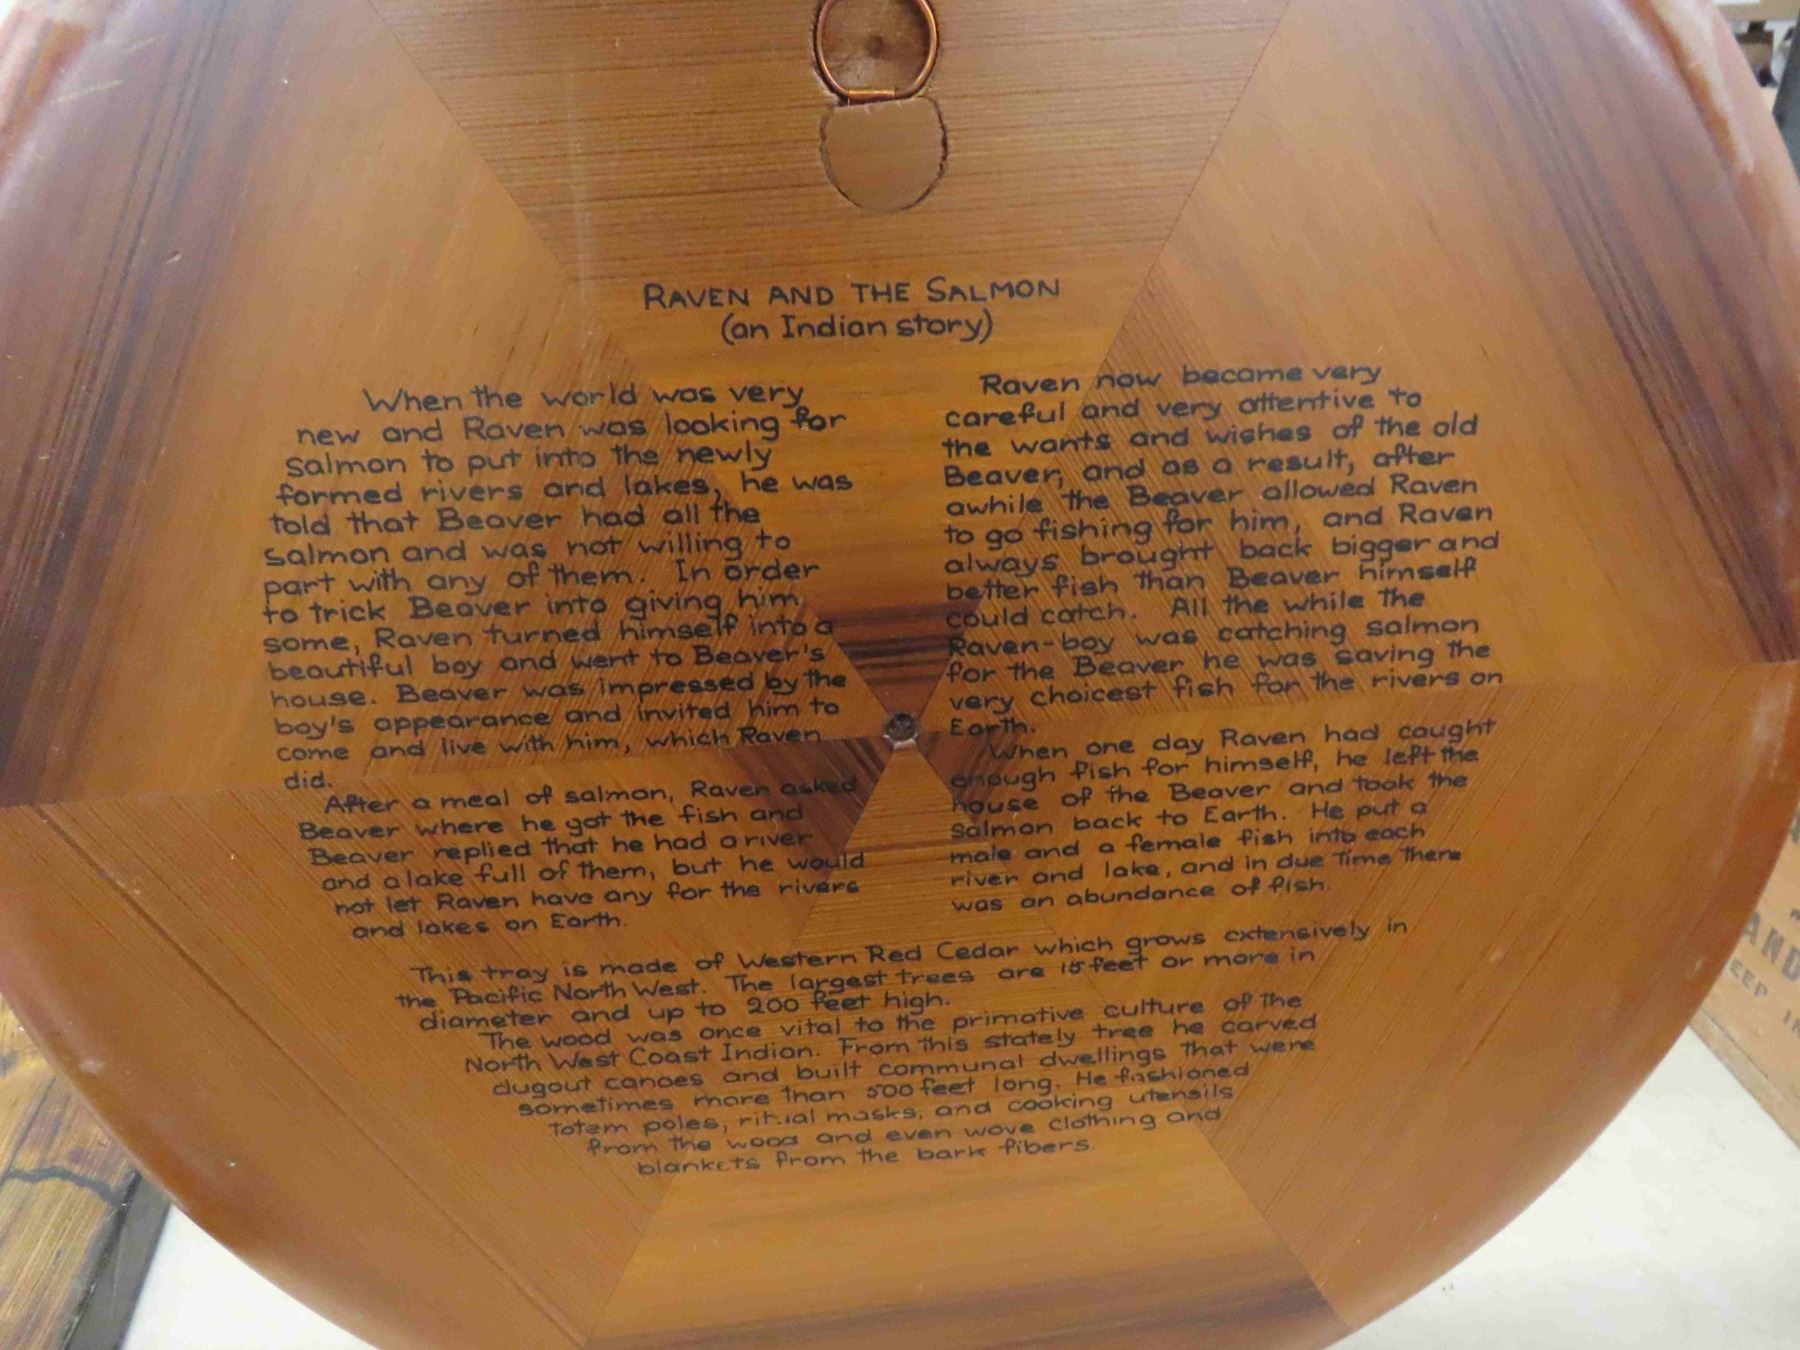 RAVEN AND THE SALMON
(an Indian story)
When the world was very
new and Raven was looking for
salmon to put into the newly
formed rivers and lakes, he was
told that Beaver had all the
salmon and was not willing to
part with any of them. In order
to trick Beaver into giving him
some, Raven turned himself into a
beautiful boy and went to Beaver's
house. Beaver was impressed by the
boy's appearance and invited him to
come and live with him, which Raven
did.
After a meal of salmon, Raven asked
Beaver where he got the fish and
Beaver replied that he had a river
and a lake full of them, but he would
not let Raven have any for the rivers
and lakes on Earth.
Raven now became very
careful and very attentive to
the wants and wishes of the old
Beaver, and as a result, after
awhile the Beaver allowed Raven
to go fishing for him, and Raven
always brought back bigger and
better fish than Beaver himself
could catch. All the while the
Raven-boy was catching salmon
for the Beaver he was saving the
very choicest fish for the rivers on
Earth.
When one day Raven had caught
enough fish for himself, he left the
house of the Beaver and took the
salmon back to Earth. He put a
male and a female fish into each
river and lake, and in due time there
was an abundance of fish.
This tray is made of Western Red Cedar which grows extensively in
the Pacific North West. The largest trees are 15 feet or more in
diameter and up to 200 feet high.
The wood was once vital to the primative culture of the
North West Coast Indian. From this stately tree he carved
dugout canoes and built communal dwellings that were
sometimes more than 500 feet long. He fashioned
totem poles, ritual masks, and cooking utensils
from the wood and even wove clothing and
blankets from the bark fibers.
AND
EEP